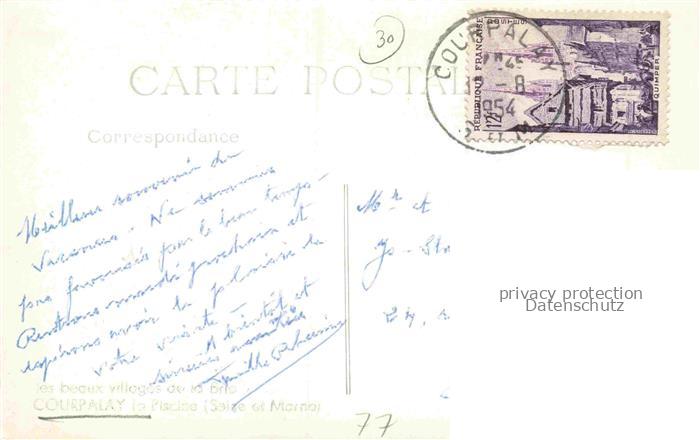 30
CARTE POSTALE
Correspondance
COURPALAY
-45
-8
1954
RÉPUBLIQUE FRANÇAISE
POSTES
12F
QUIMPER
Meilleur souvenir de
vacances. Ne sommes
pas favorisés par le beau temps.
Rentrons mardi prochain et
espérons avoir le plaisir de
votre visite.
A bientôt et
sincères amitiés
Famille
Mr et
24,
privacy protection
Datenschutz
les beaux villages de la Brie
COURPALAY la Piscine (Seine et Marne)
77